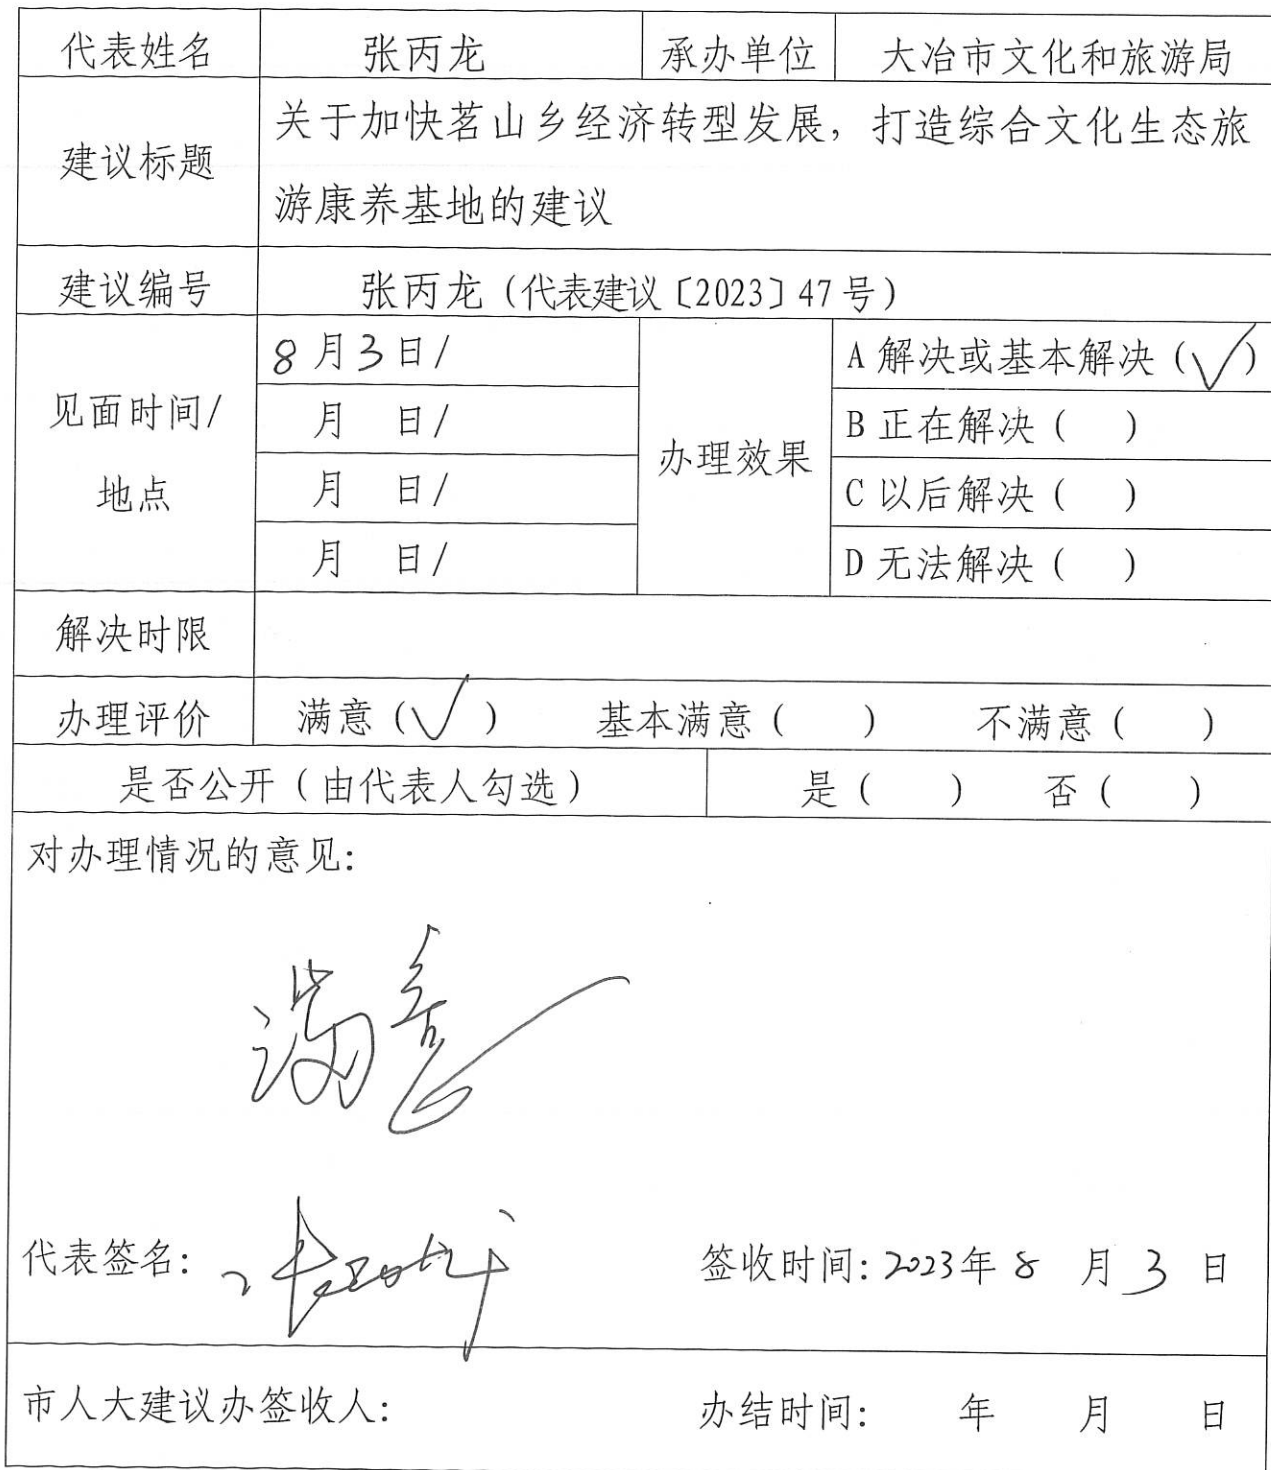 代表姓名 张丙龙 承办单位 大冶市文化和旅游局
建议标题
关于加快茗山乡经济转型发展，打造综合文化生态旅
游康养基地的建议
建议编号 张丙龙（代表建议〔2023〕47号）
见面时间/
地点
8月3日/
月 日/
月 日/
月 日/
办理效果
A 解决或基本解决（✓）
B 正在解决（ ）
C 以后解决（ ）
D 无法解决（ ）
解决时限
办理评价 满意（✓） 基本满意（ ） 不满意（ ）
是否公开（由代表人勾选） 是（ ） 否（ ）
对办理情况的意见:
满意
代表签名: 张丙龙 签收时间: 2023年 8 月 3 日
市人大建议办签收人: 办结时间: 年 月 日